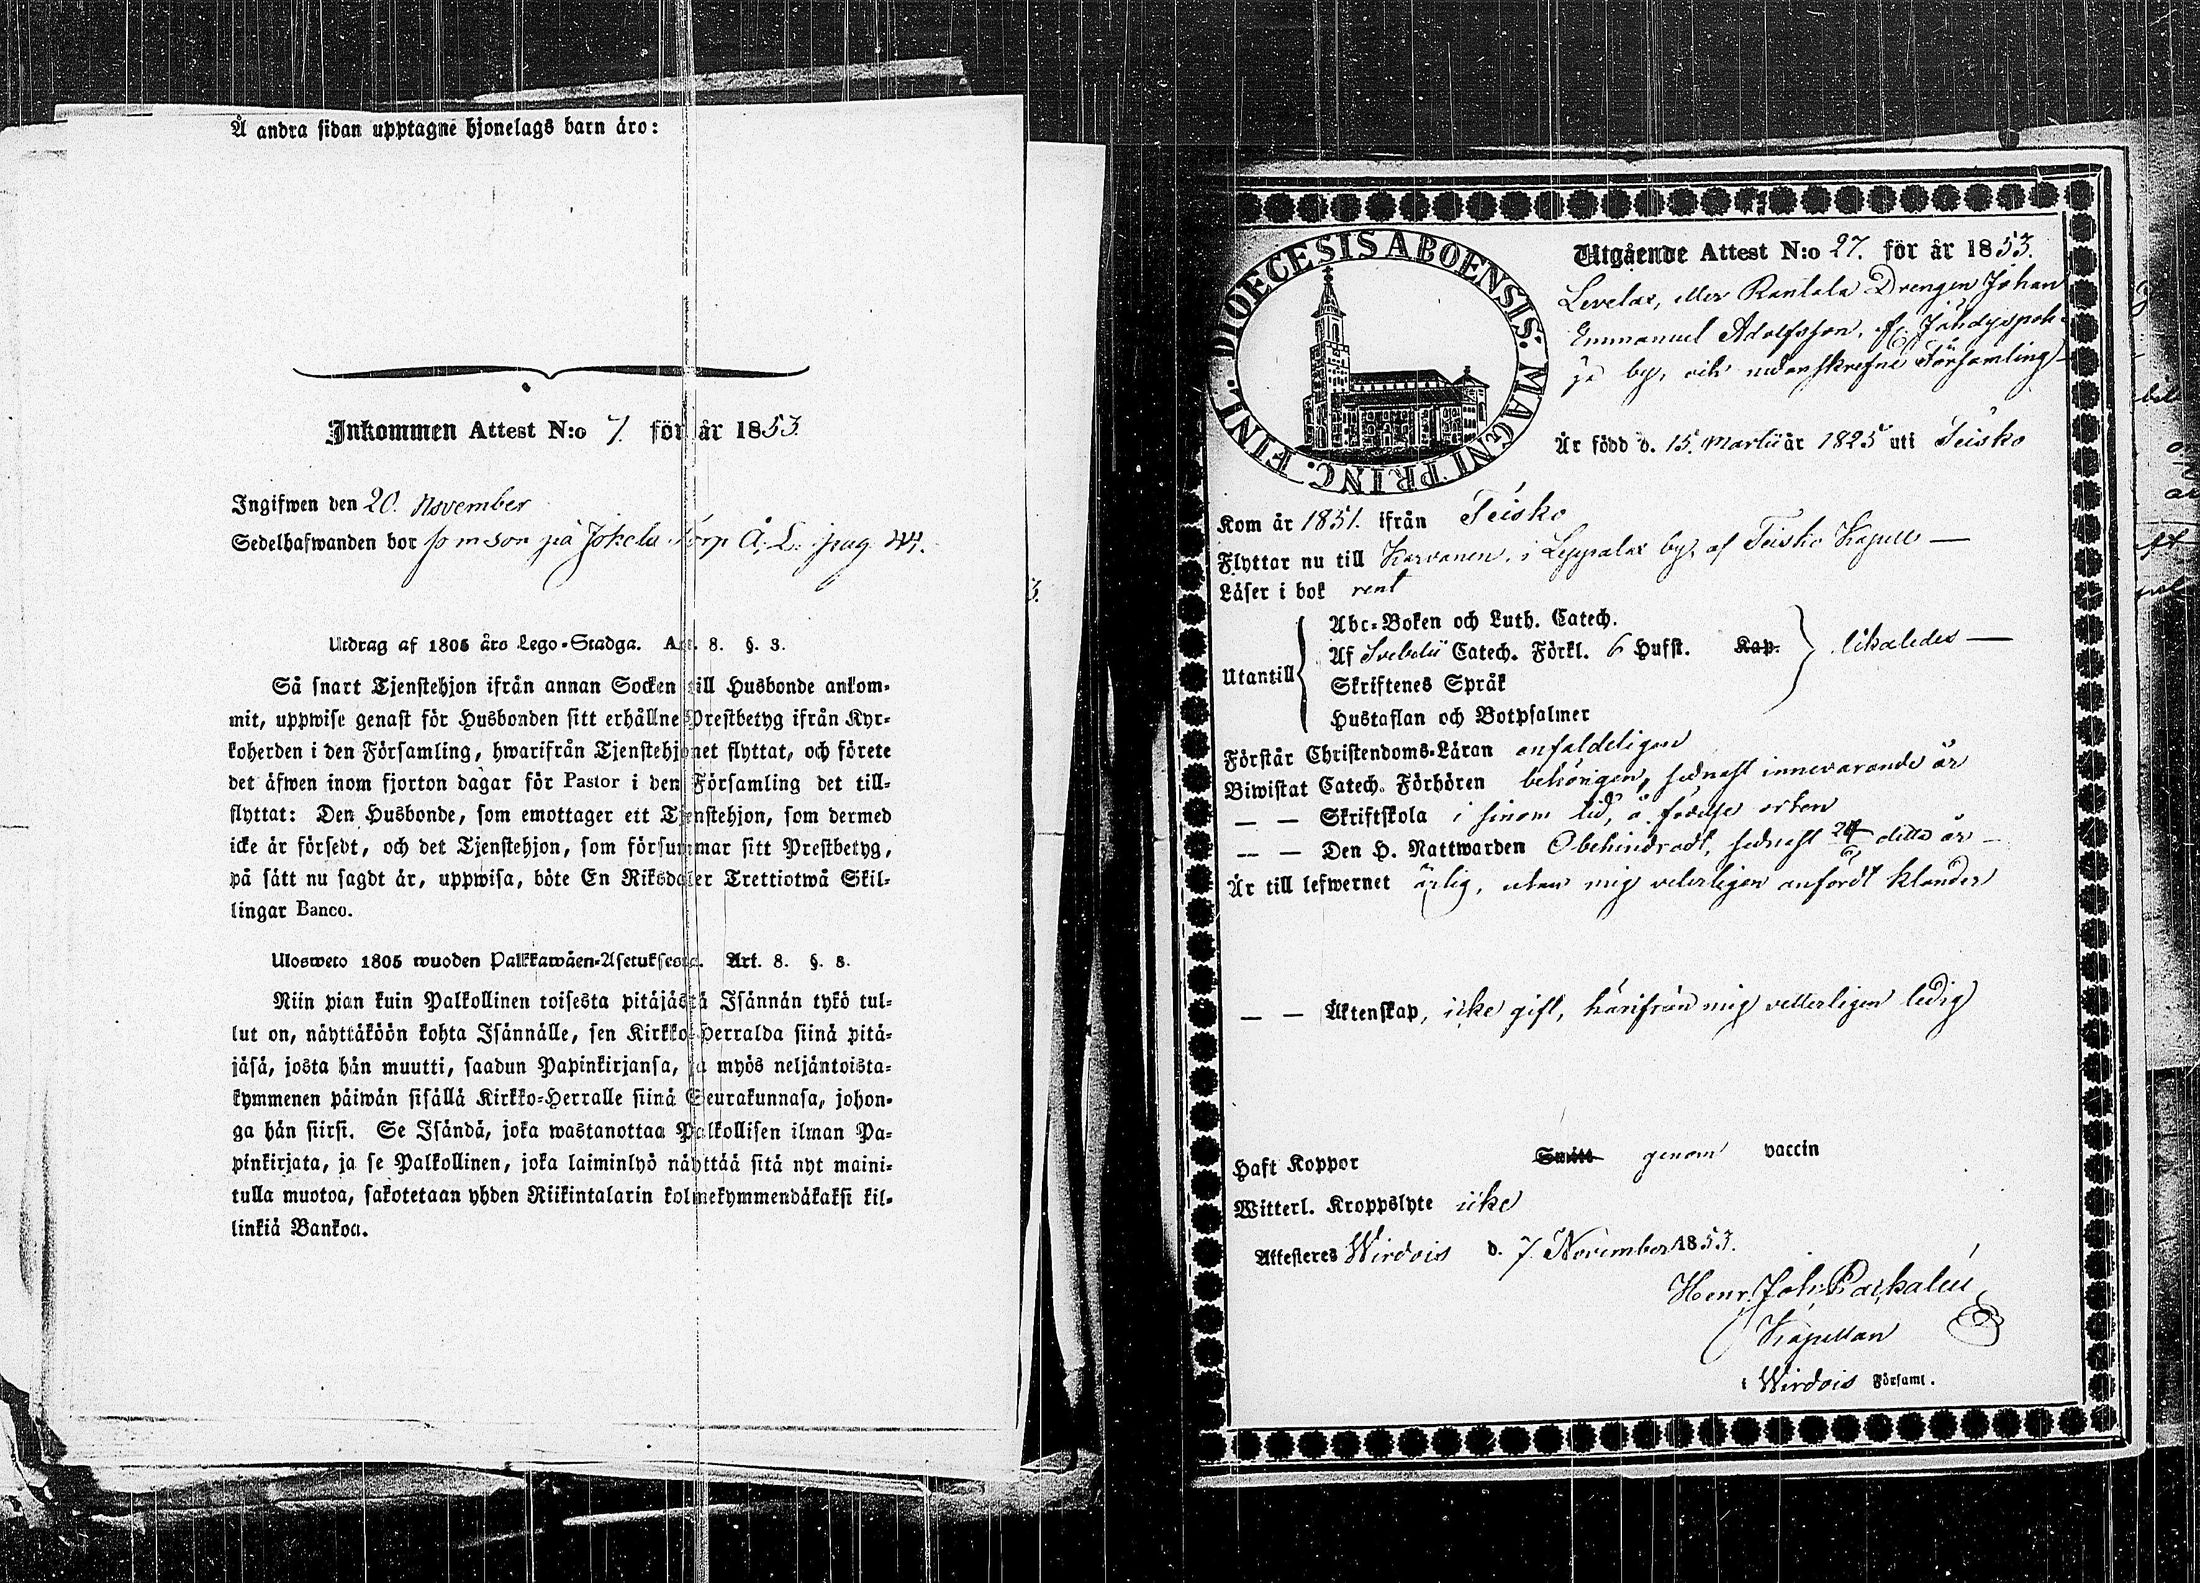 Å andra sidan upptagne hjonelags barn äro:
Inkommen Attest N:o 7. för år 1853.
Ingifwen den 20. November
Sedelhafwanden bor som son på Jokela Torp Å. L. pag. 44.
Utdrag af 1805 års Lego-Stadga. Art. 8. §. 3.
Så snart Tjenstehjon ifrån annan Socken till Husbonde ankom-
mit, uppwise genast för Husbonden sitt erhållne Prestbetyg ifrån Kyr-
koherden i den Församling, hwarifrån Tjenstehjonet flyttat, och förete
det äfwen inom fjorton dagar för Pastor i den Församling det till-
flyttat: Den Husbonde, som emottager ett Tjenstehjon, som dermed
icke är försedt, och det Tjenstehjon, som försummar sitt Prestbetyg,
på sätt nu sagdt är, uppwisa, böte En Riksdaler Trettiotwå Skil-
lingar Banco.
Ulosweto 1805 wuoden Palkkawäen-Asetuksesta. Art. 8. §. 3.
Niin pian kuin Palkollinen toisesta pitäjästä Isännän tykö tul-
lut on, näyttäköön kohta Isännälle, sen Kirkko-Herralda siinä pitä-
jäsä, josta hän muutti, saadun Papinkirjansa, ja myös neljäntoista-
kymmenen päiwän sisällä Kirkko-Herralle siinä Seurakunnasa, johon-
ga hän siirsi. Se Isändä, joka wastanottaa Palkollisen ilman Pa-
pinkirjata, ja se Palkollinen, joka laiminlyö näyttää sitä nyt maini-
tulla muotoa, sakotetaan yhden Riikintalarin kolmekymmendäkaksi kil-
linkiä Bankoa.
DIOECESIS ABOENSIS. MAGNI PRINC. FINL.
Utgående Attest N:o 27. för år 1853.
Levelax, eller Rantala Drengen Johan
Emmanuel Adolfsson, af Jähdyspoh-
ja by, uti undanskrefne Församling
Är född d. 15. Martii år 1825 uti Teisko
Kom år 1851. ifrån Teisko
Flyttar nu till Karvanen, i Leppalax by, af Teisko Kapell —
Läser i bok rent
Utantill
Abc-Boken och Luth. Catech.
Af Svebelii Catech. Förkl. 6 Hufst. Kap.
Skriftenes Språk
Hustaflan och Botpsalmer
likaledes —
Förstår Christendoms-Läran enfaldeligen
Biwistat Catech. Förhören behörigen, sednast innevarande år
— — Skriftskola i sinom tid, å födelse orten
— — Den H. Nattwarden Obehindradt, sednast 24/6 detta år —
Är till lefwernet ärlig, utan mig veterligen anfördt klander
— — Äktenskap, icke gift, härifrån mig vetterligen ledig
Haft Koppor Smitt genom vaccin
Witterl. Kroppslyte icke
Attesteres Wirdois d. 7. November 1853.
Henr. Joh.
Kapellan
i Wirdois Församl.